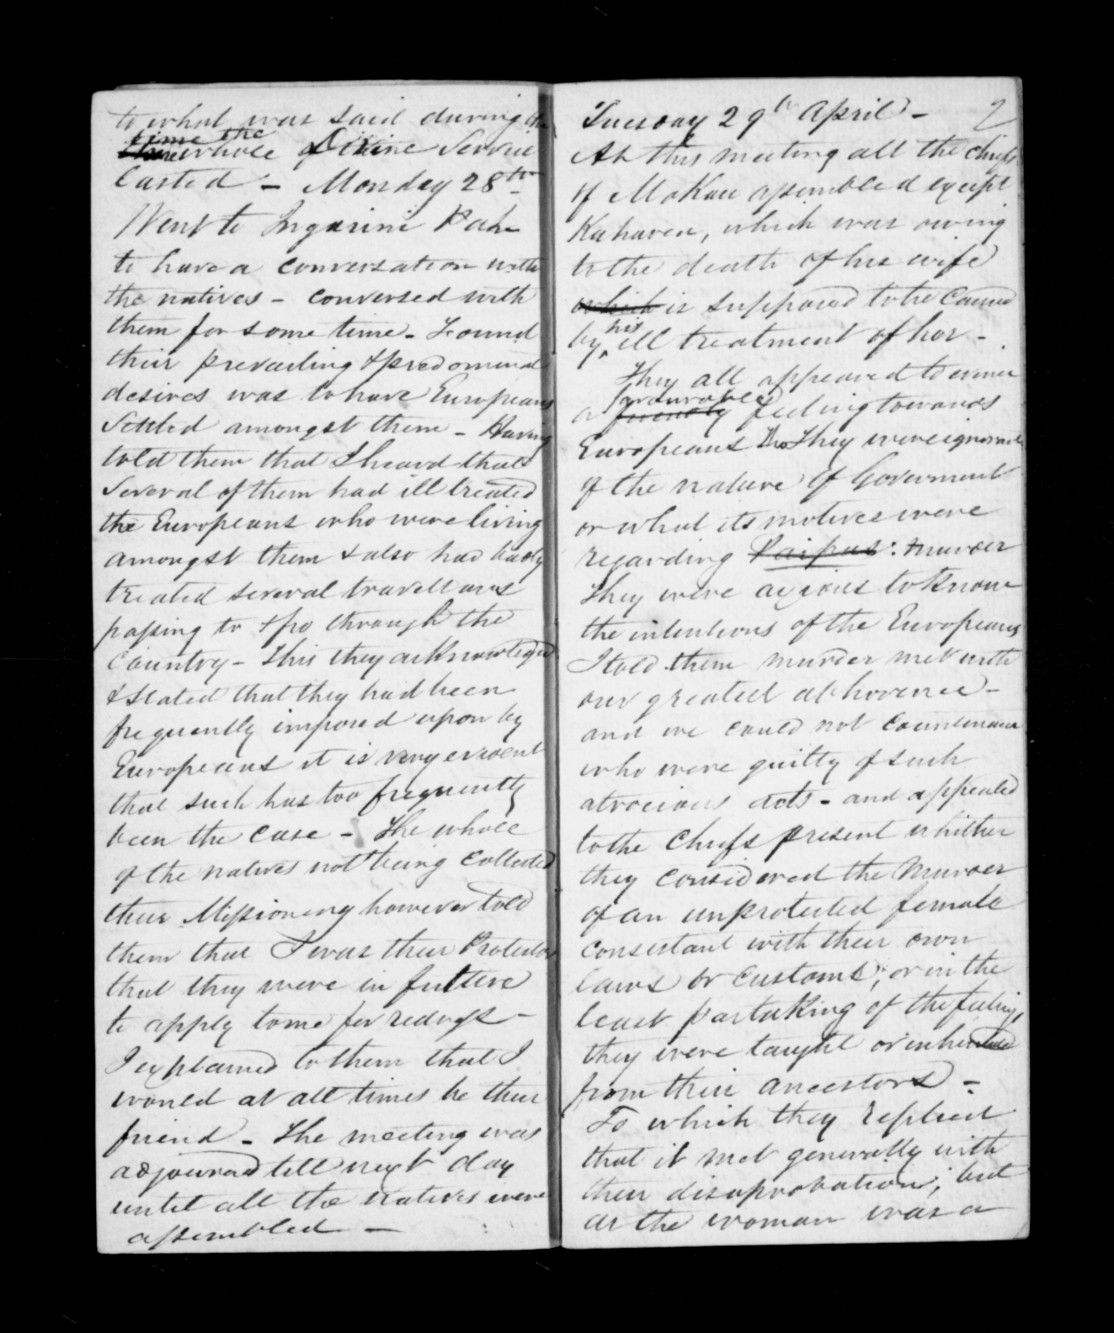 to what was said during the
time the
whole of Divine Service
lasted - Monday 28th
Went to Ingarini Pah
to have a conversation with
the natives - conversed with
them for some time - Found
their prevailing & predominal
desires was to have Europeans
Settled amongst them - Having
told them that I heard that
several of them had ill treated
the Europeans who were living
amongst them & also had badly
treated several travellars
passing to & fro through the
Country - This they acknowledged
& stated that they had been
frequently imposed upon by
Europeans it is very evident
that such has too frequently
been the case - The whole
of the natives not being collected
their Missionery however told
them that I was their Protector
that they were in future
to apply to me for redress -
I explained to them that I
would at all times be their
friend - The meeting was
adjourned till next day
until all the natives were
assembled -
Tuesday 29th April - 2
At this meeting all the chiefs
of Mokau assembled except
Kaharoa, which was owing
to the death of his wife
which is supposed to be caused
by his ill treatment of her -
They all appeared to evince
a favourable friendly feeling towards
Europeans Tho They were ignorant
of the nature of Goverment
or what its motives were
regarding Paipus: murder
They were axious to know
the intentions of the Europeans
I told them murder met with
our greatest abhorence -
and we could not countenance
who were guilty of such
atrocious acts - and appealed
to the Chiefs present whither
they considered the Murder
of an unprotected female
consistant with their own
laws or customs; or in the
least partaking of the feelings
they were taught or inherited
from their ancestors -
To which they replied
that it met generally with
their disaprobation; but
as the woman was a